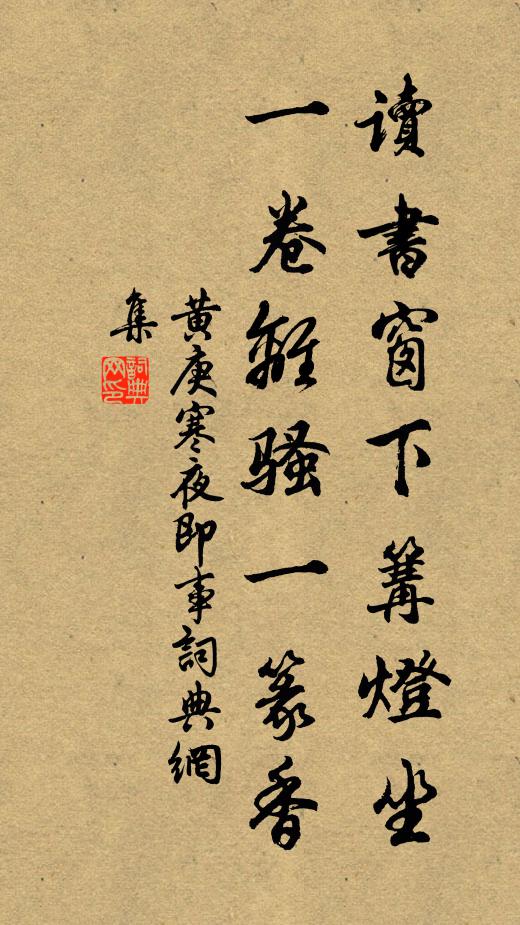 讀書窗下篝燈坐
一卷離騷一篆香
黃庚寒夜即事詞典網
集
詞典
网印